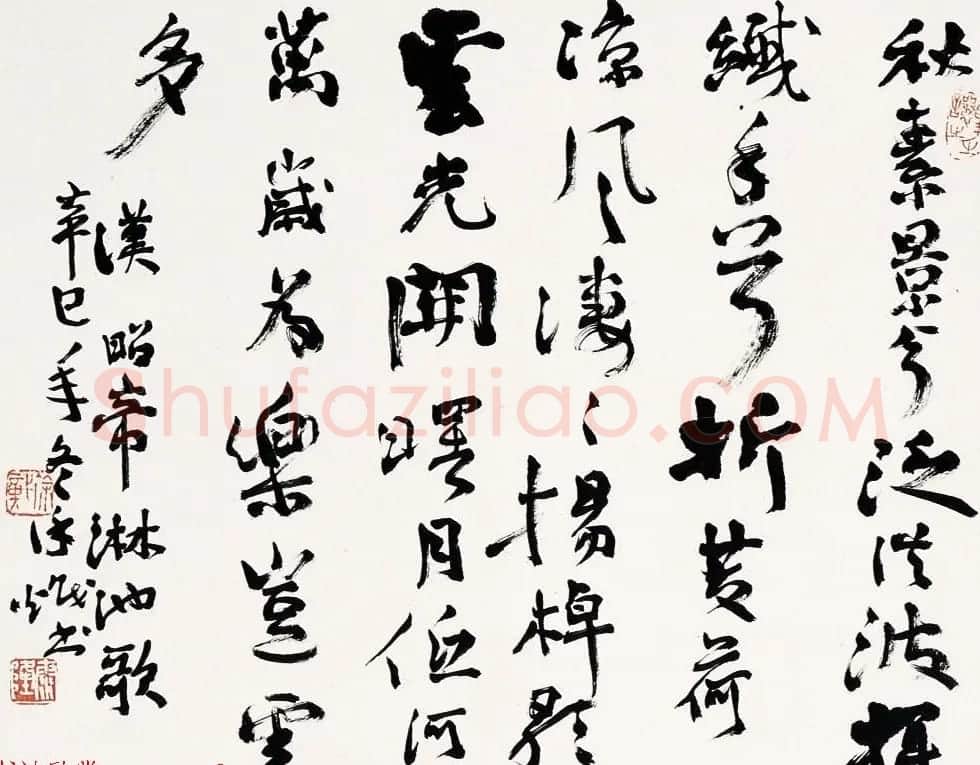 秋素景兮泛洪波揮
纖手兮折芰荷
涼風淒〻揚棹歌
雲光開曙月低河
萬歲為樂豈雲
多
漢昭帝淋池歌
辛巳年冬
書
Shufaziliao.COM